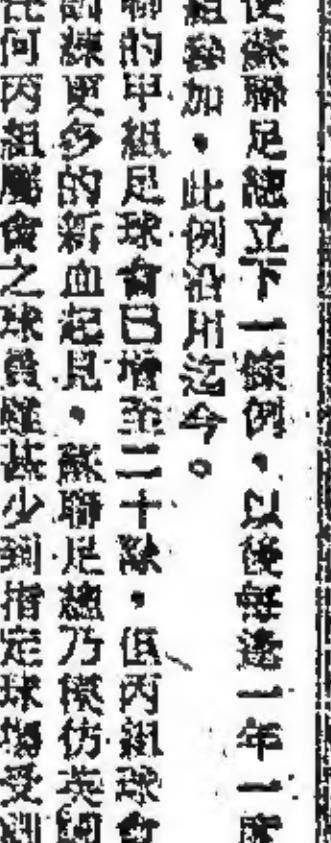 蘇聯足總立下一條例，以後每逢一年一度
組參加，此例沿用迄今。
的甲組足球會已增至二十隊，但丙組球會
訓練更多的新血起見，蘇聯足總乃模仿英
何丙組屬會之球員雖甚少到指定球場受訓